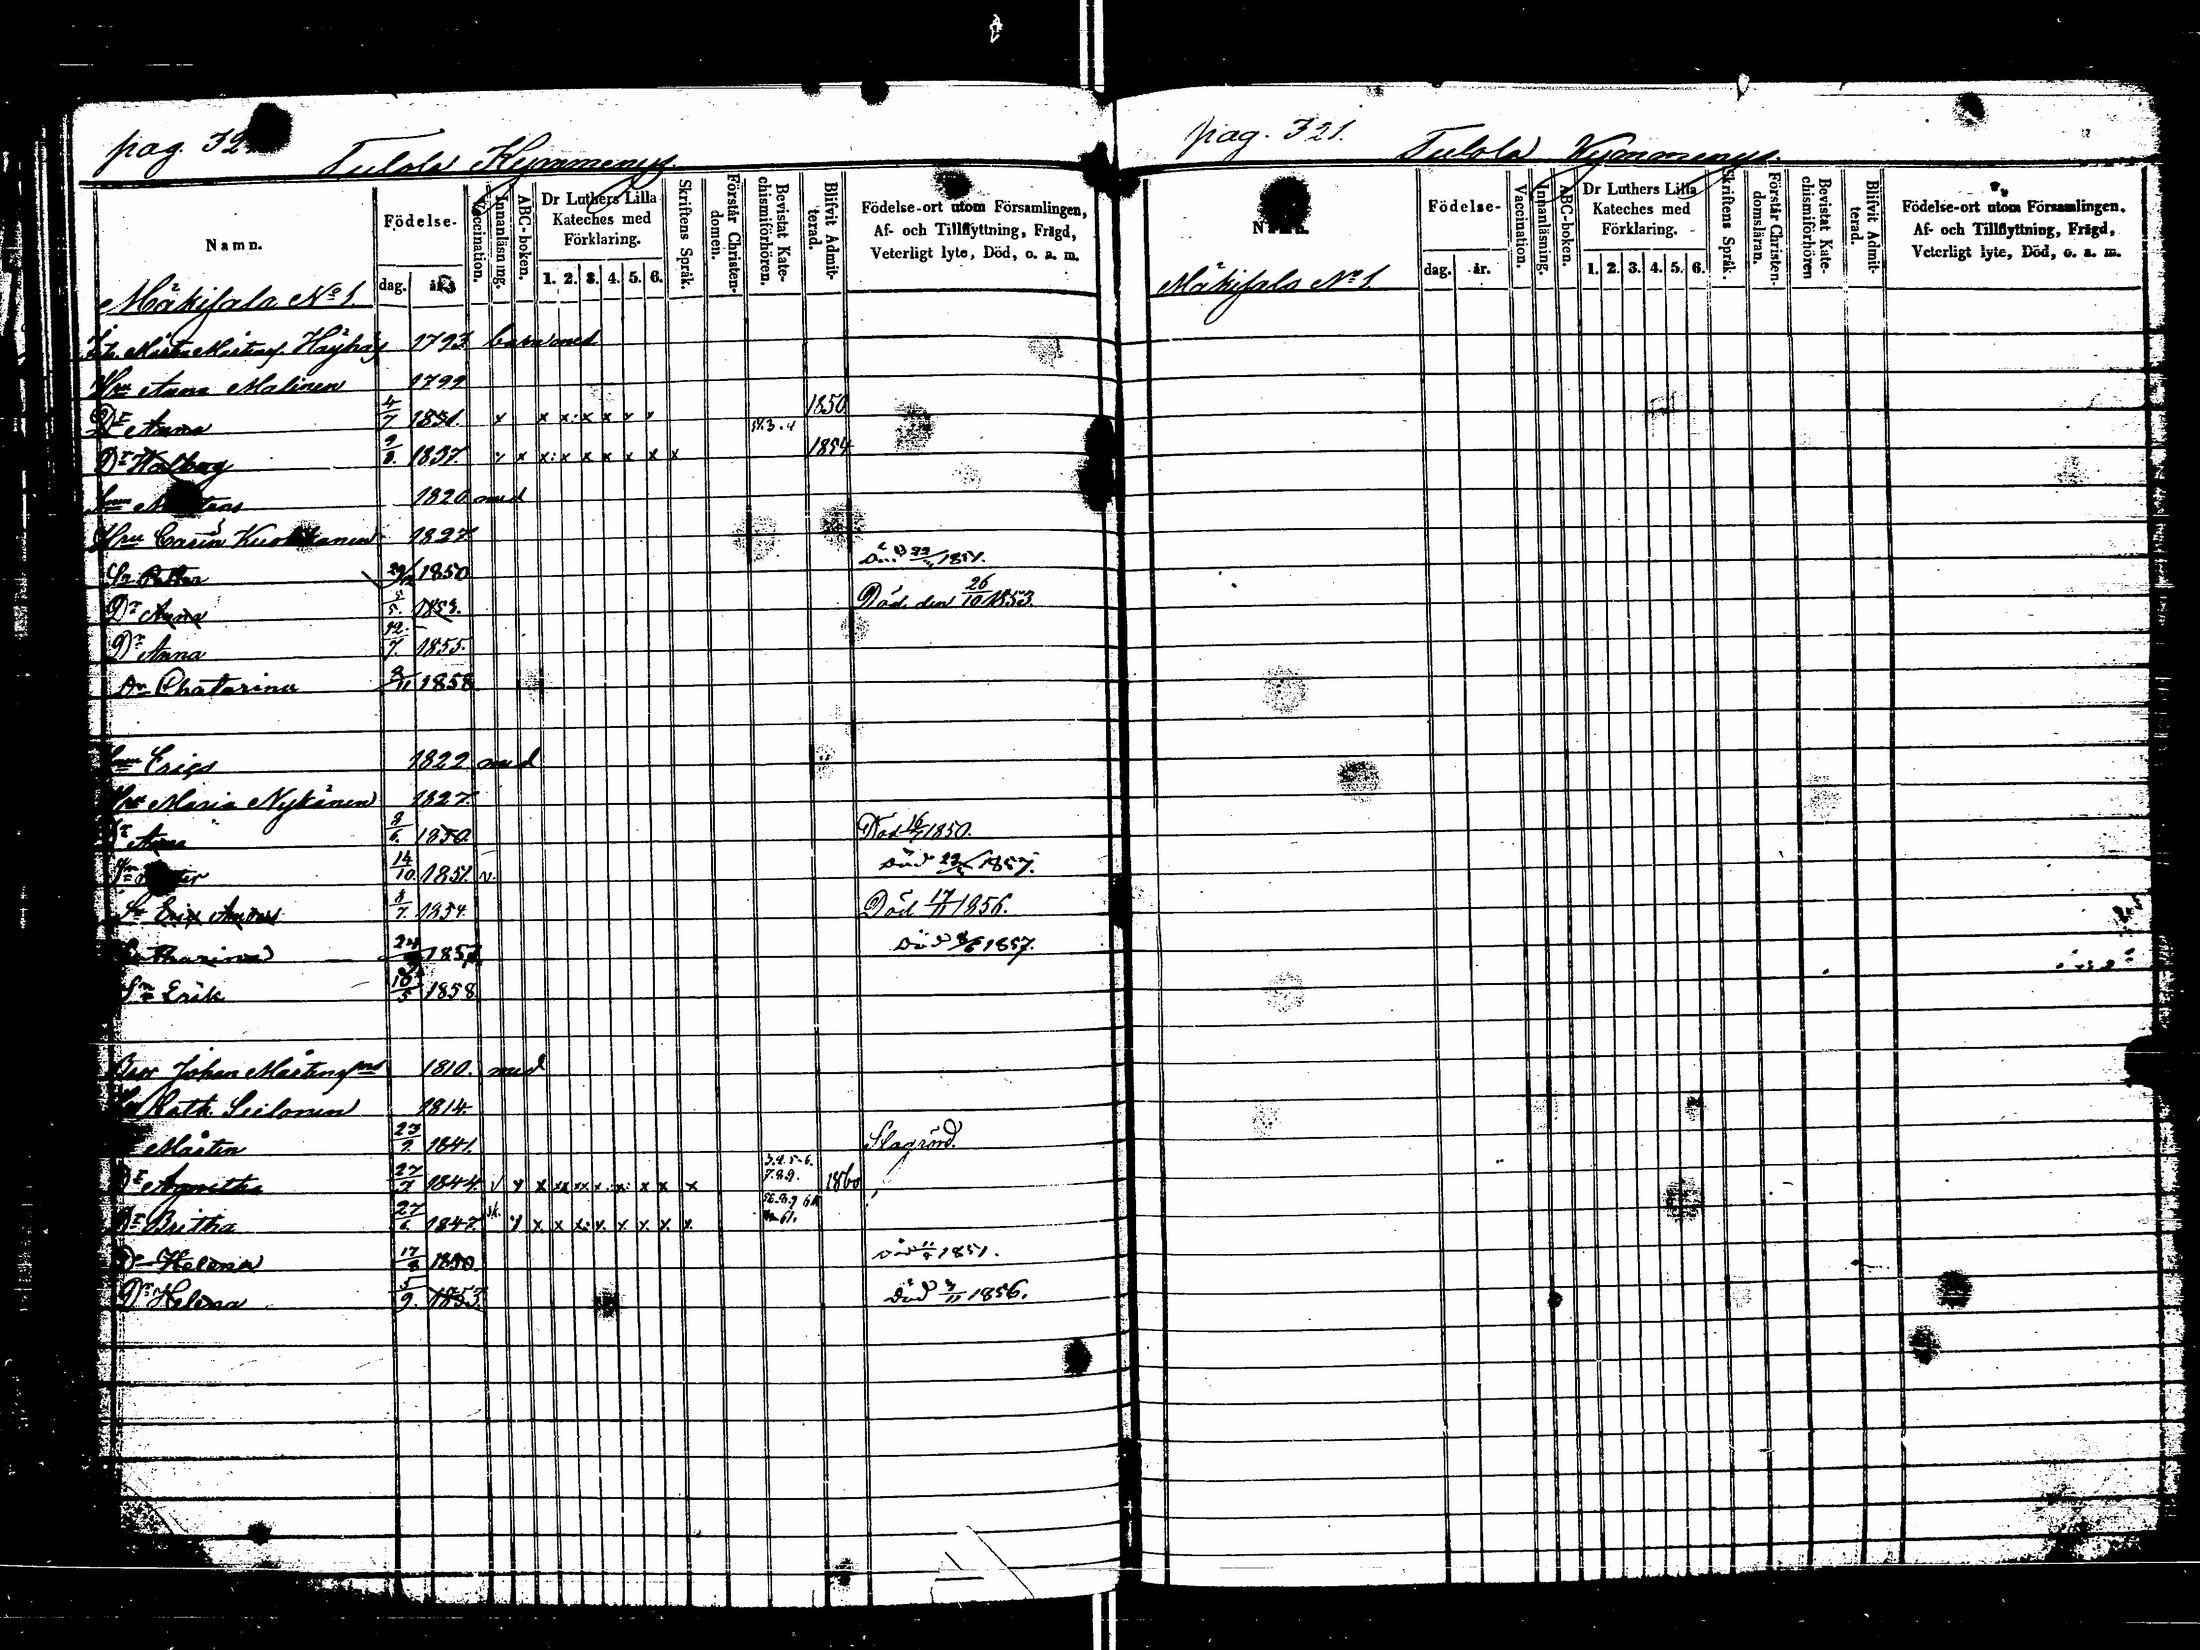 pag. 32
Tulola Kymmenys
Namn.
Födelse-
dag.
år.
Vaccination.
Innanläsning.
ABC-boken.
Dr Luthers Lilla
Kateches med
Förklaring.
1. 2. 3. 4. 5. 6.
Skriftens Språk.
Förstår Christen-
domen.
Bevistat Kate-
chismiförhören.
Blifvit Admit-
terad.
Födelse-ort utom Församlingen,
Af- och Tillflyttning, Frägd,
Veterligt lyte, Död, o. a. m.
Mäkisalo No 1.
1793. barn med
Hru Anna Malinen 1799
Dr Anna 4/7 1831. x x x x x x x 1850
Dr Walborg 9/8. 1837. x x x x x x x x x 1854
1820 med
Hru Carin 1827.
Sr Petter 1850 1851.
Dr Anna 5/5. 1853. Död den 26/10 1853.
Dr Anna 12/7. 1855.
Dr Chatarina 1858
Eric 1822 med
Hru Maria Nykänen 1827.
Anna 1850. Död 16/7 1850.
14/10 1851. v. död 1857.
Sr Erik Anders 1854. Död 17/11 1856.
Catharina 24 1857. död 1857.
Sn Erik 18/5 1858
Bror Johan Mårtens 1810. med
Cath. Siilonen 1814.
Mårten 1841. Slagrörd.
Dr Agnetha 27/7 1844. v x x xx xx x x x x x 3.4.5-6. 7.8.9. 1860
Dr Britha 27/6 1847. x x x x x x x x 61.
Dr Helena 17/8 1850. 1851.
Dr Helena 5/9. 1853. död 3/11 1856.
pag. 321.
Tulola Kymmenys.
Födelse-
dag.
år.
Vaccination.
Innanläsning.
ABC-boken.
Dr Luthers Lilla
Kateches med
Förklaring.
1. 2. 3. 4. 5. 6.
Skriftens Språk.
Förstår Christen-
domsläran.
Bevistat Kate-
chismiförhören
Blifvit Admit-
terad.
Födelse-ort utom Församlingen.
Af- och Tillflyttning, Frägd,
Veterligt lyte, Död, o. a. m.
Mäkisalo No 1.